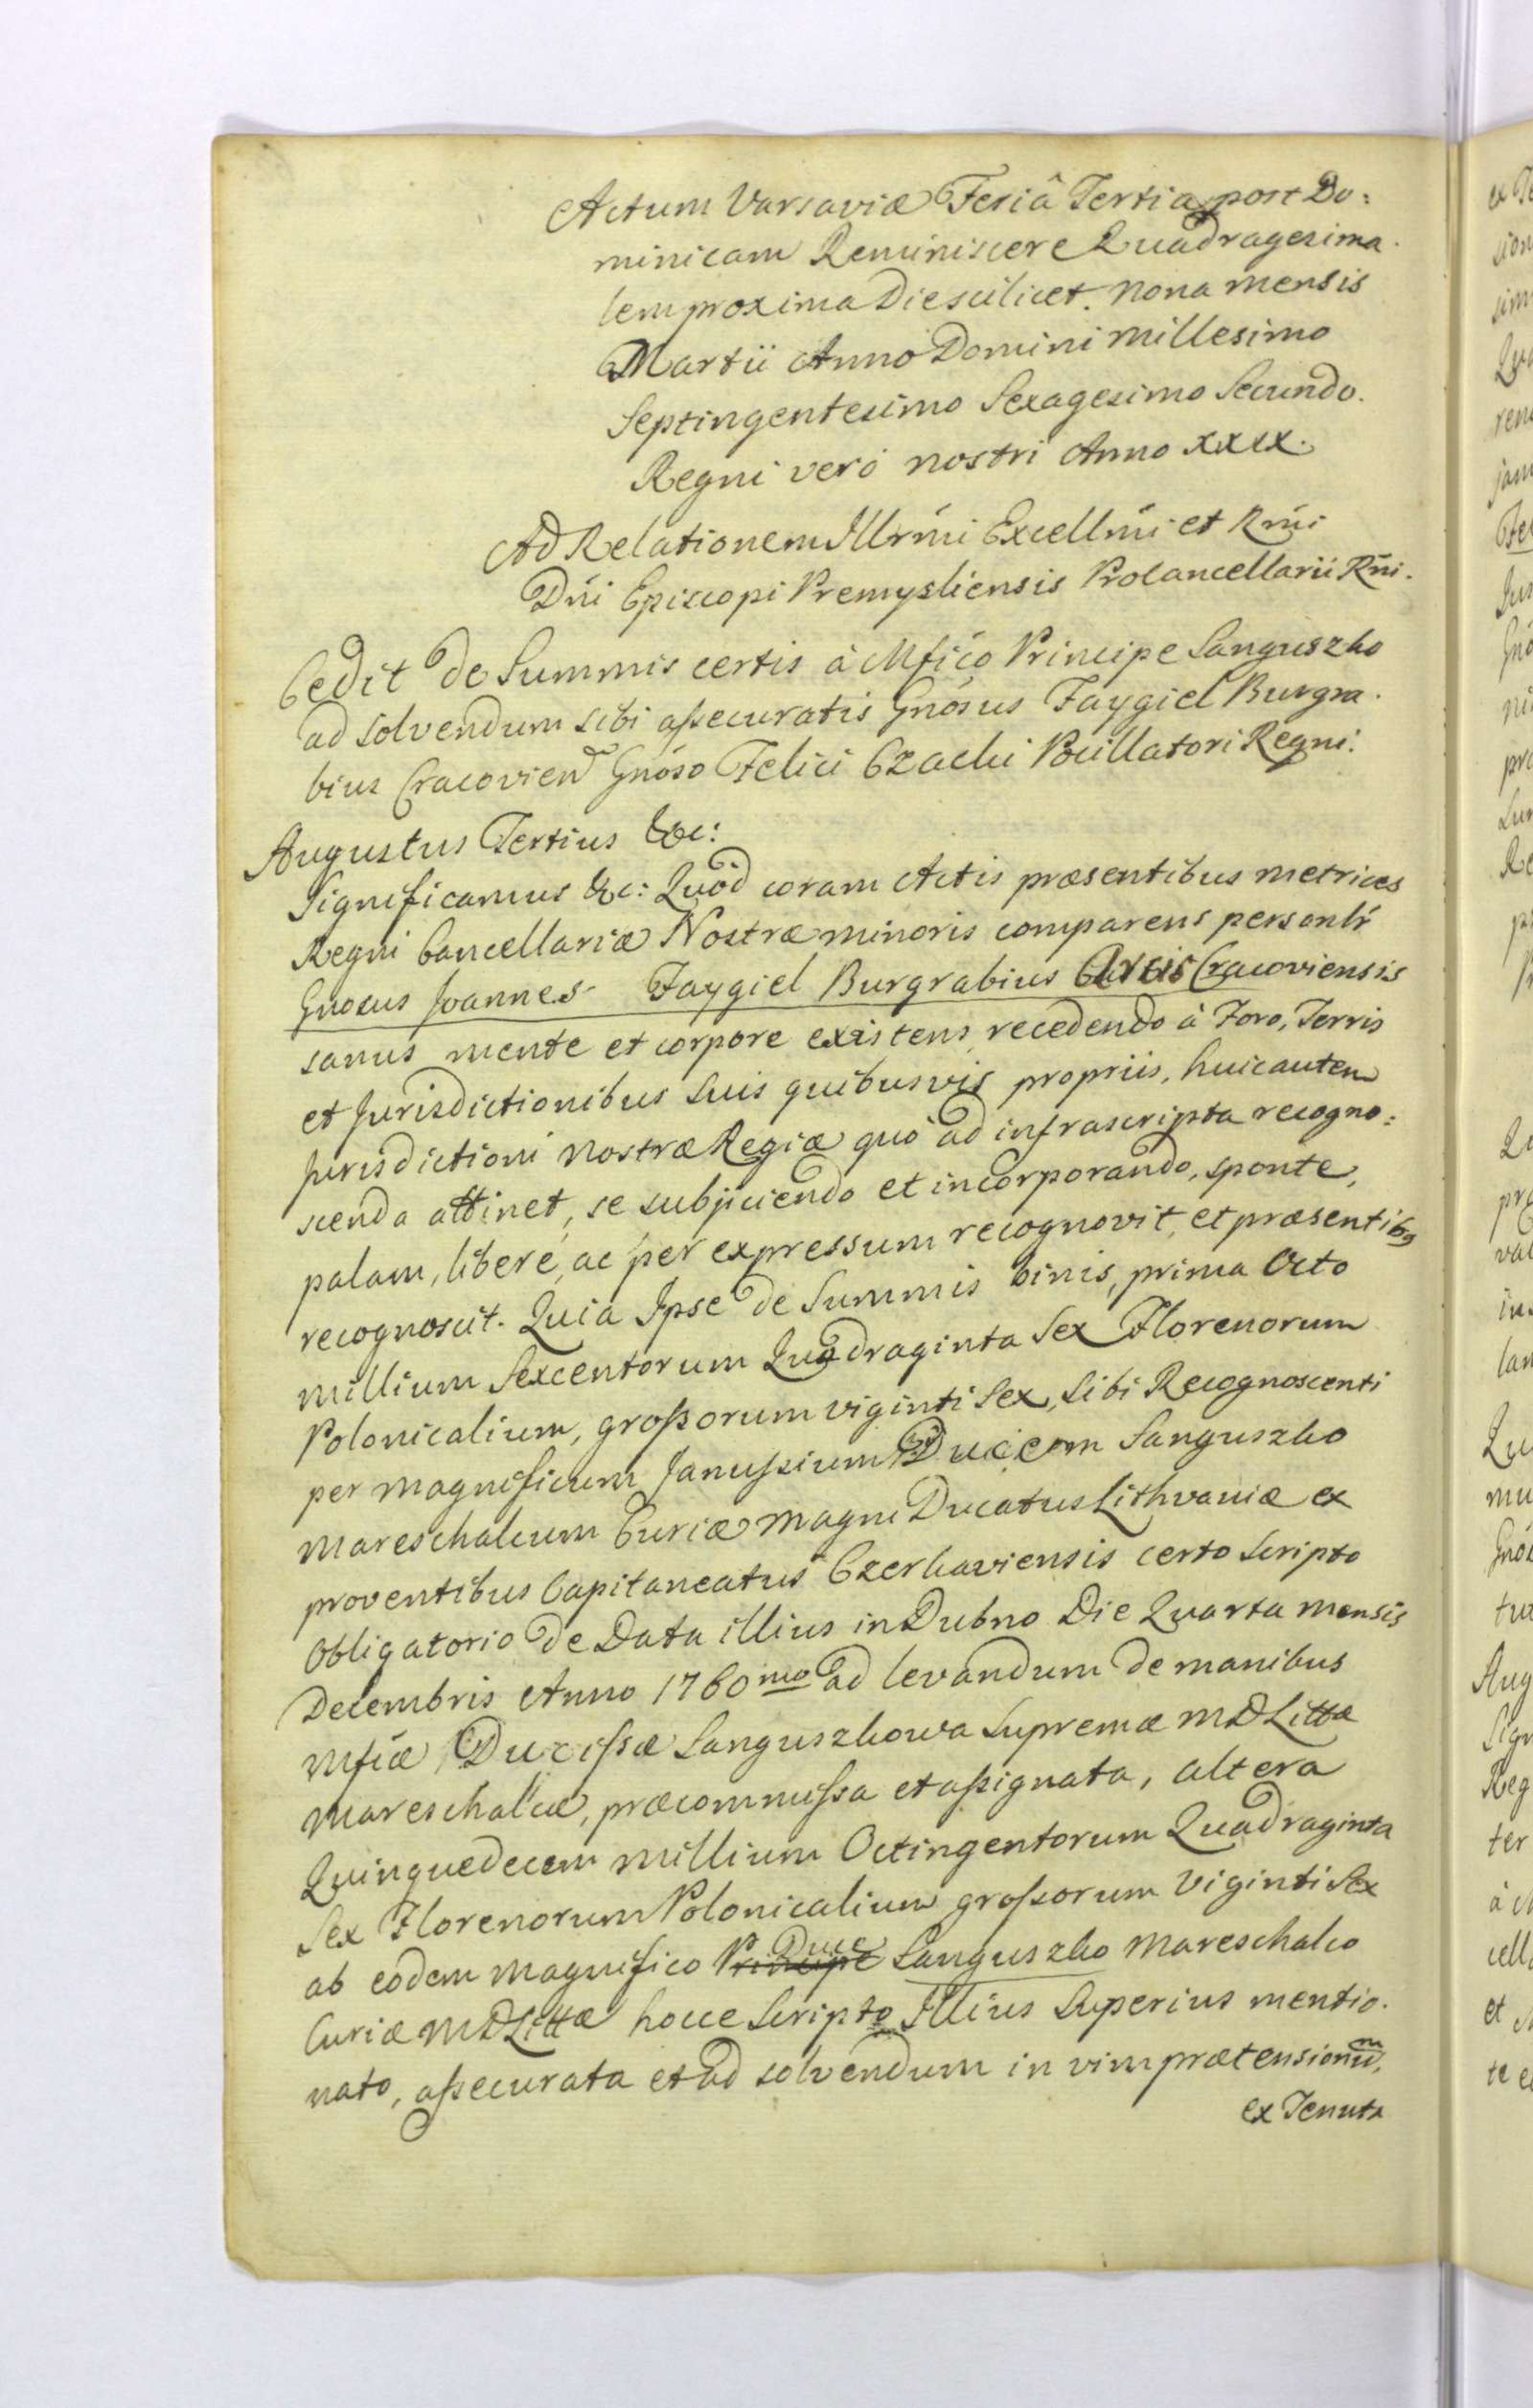 Actum Varsaviæ Feriâ Tertia post Do:
minicam Reminiscere Quadragesima-
lem proxima Die scilicet nona mensis
Martii Anno Domini millesimo
Septingentesimo Sexagesimo Secundo.
Regni verò nostri Anno XXIX.
Ad Relationem Illrmi Excellmi et Rmi
Dni Episcopi Premysliensis Procancellarii Rni.
Cedit de Summis certis à Mfico Principe Sanguszko
ad solvendum sibi assecuratis Gnosus Faygiel Burgra-
bius Cracovien Gnoso Felici Czacki Pocillatori Regni.
Augustus Tertius &c:
Significamus &c: Quod coram Actis præsentibus metrices
Regni Cancellariæ Nostræ minoris comparens personlr
Gnosus Joannes Faygiel Burgrabius Arcis Cracoviensis
sanus mente et corpore existens, recedendo à Foro, Terris
et Jurisdictionibus suis quibusvis propriis, huic autem
Jurisdictioni nostræ Regiæ quò ad infrascripta recogno:
scenda attinet, se subjiciendo et incorporando, sponte,
palam, liberè, ac per expressum recognovit, et præsentibg
recognoscit. Quia Ipse de Summis binis, prima Octo
millium Sexcentorum Quadraginta Sex Florenorum
Polonicalium, grossorum viginti Sex, Sibi Recognoscenti
per magnificum Janussium Ducem Sanguszko
mareschalcum Curiæ magni Ducatus Lithvaniæ ex
proventibus Capitaneatus Czerkaviensis certo Scripto
Obligatorio de Data illius in Dubno Die Quarta mensis
Decembris Anno 1760mo ad levandum de manibus
Mfiæ Ducissæ Sanguszkowa Supremæ MDLittæ
mareschalcæ, præcommissa et assignata, altera
Quinquedecem millium Octingentorum Quadraginta
Sex Florenorum Polonicalium grossorum Viginti Sex
ab eodem magnifico Principe Duce Sanguszko mareschalco
Curiæ MDLittæ hocce Scripto Illius Superius mentio-
nato, assecurata et ad solvendum in vim prætensionum,
ex Tenuta